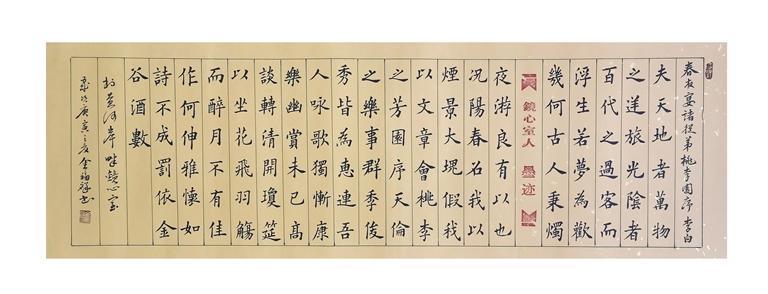 春夜宴諸從弟桃李園序 李白
夫天地者萬物
之逆旅光陰者
百代之過客而
浮生若夢為歡
幾何古人秉燭
鏡心室人 墨迹
夜游良有以也
况陽春召我以
煙景大塊假我
以文章會桃李
之芳園序天倫
之樂事群季俊
秀皆為惠連吾
人咏歌獨慚康
樂幽賞未已高
談轉清開瓊筵
以坐花飛羽觴
而醉月不有佳
作何伸雅懷如
詩不成罰依金
谷酒數
於黄河岸畔鏡心室
庚寅之夏金